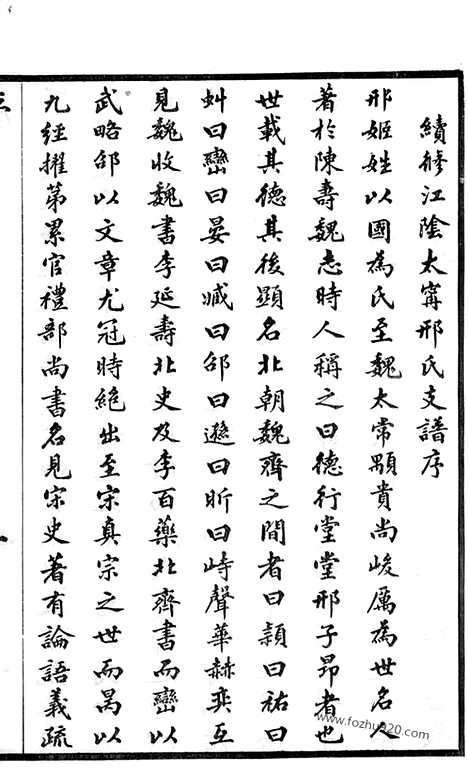 續修江陰太甯邢氏支譜序
邢姬姓以國為氏至魏太常顒貴尚峻厲為世名人
著於陳壽魏志時人稱之曰德行堂堂邢子昂者也
世載其德其後顯名北朝魏齊之間者曰穎曰祐曰
虯曰巒曰晏曰臧曰邵曰遜曰昕曰峙聲華赫奕互
見魏收魏書李延壽北史及李百藥北齊書而巒以
武略邵以文章尤冠時絕出至宋真宗之世而昺以
九經擢第累官禮部尚書名見宋史著有論語義疏
三
一
www.fozhu920.com